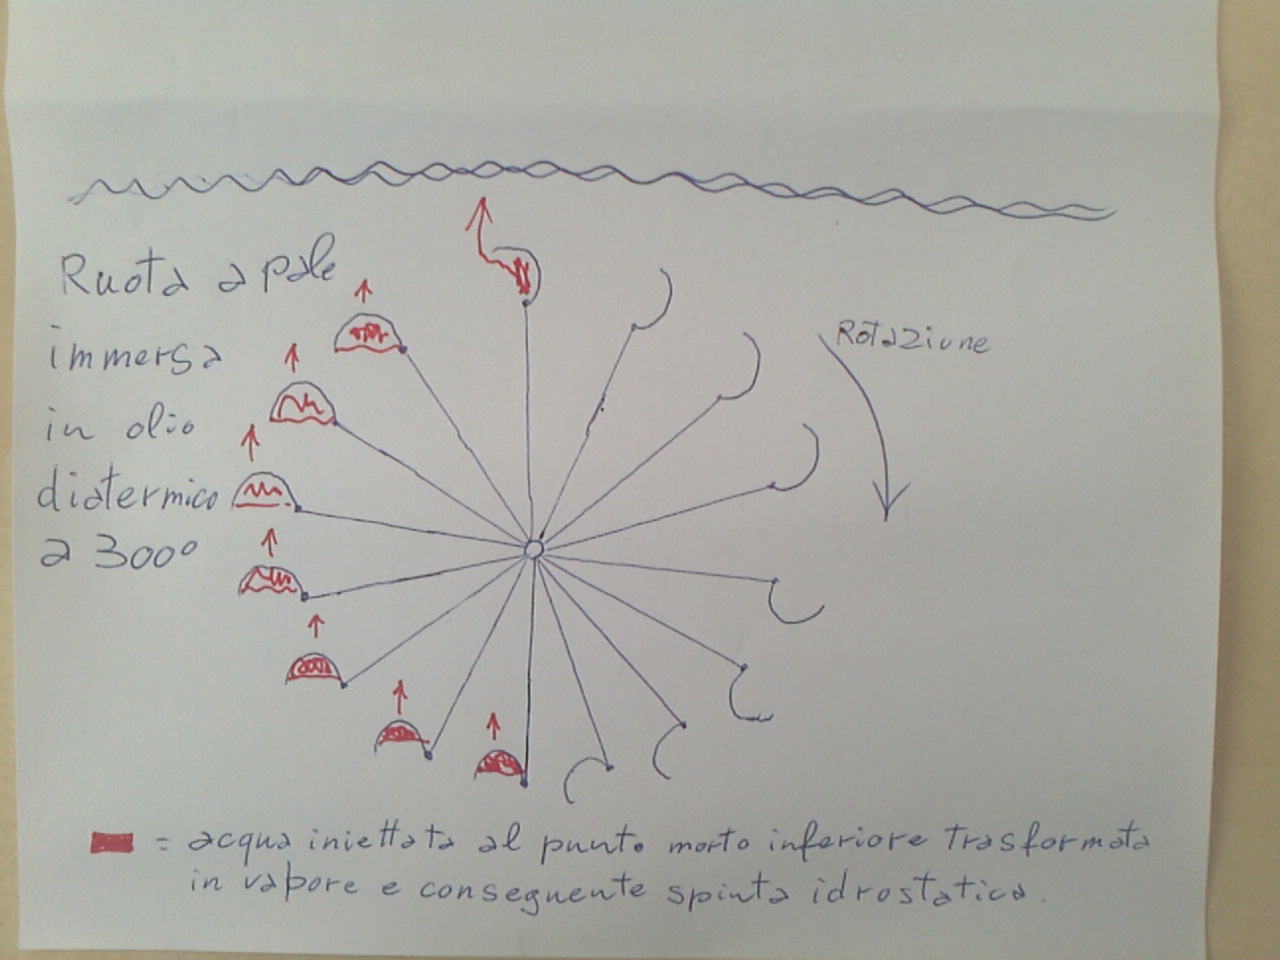 Ruota a pale
immersa
in olio
diatermico
a 300°
Rotazione
= acqua iniettata al punto morto inferiore trasformata
in vapore e conseguente spinta idrostatica.